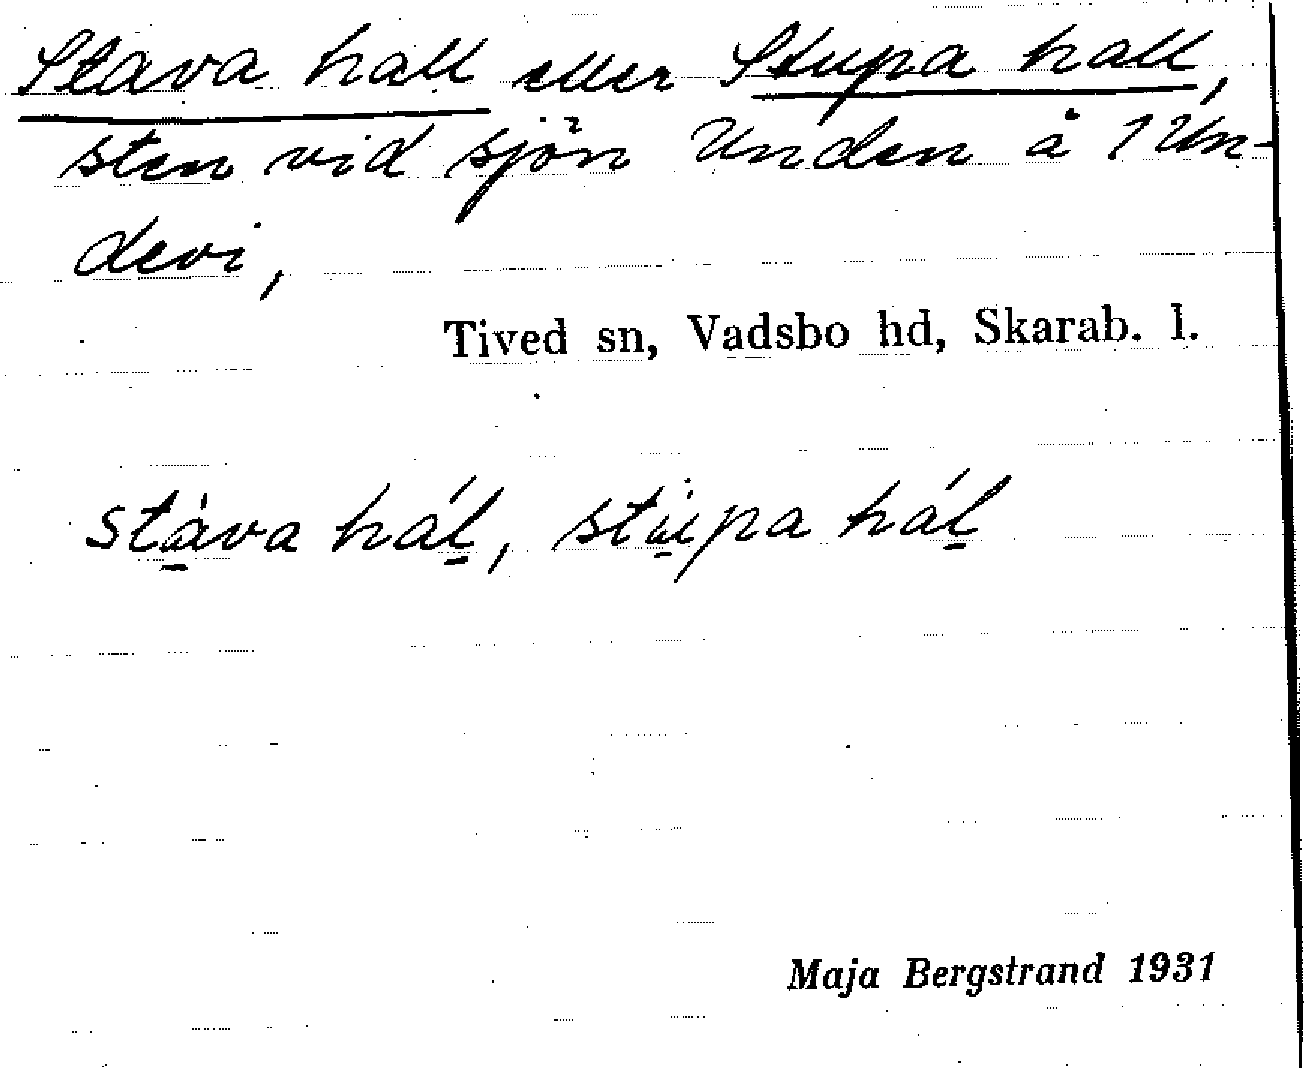 Stava hall eller Stupa hall,
sten vid sjön Unden å 1 Un-
devi,
Tived sn, Vadsbo hd, Skarab. l.
stà̱va háḻ, stù̱pa háḻ
Maja Bergstrand 1931